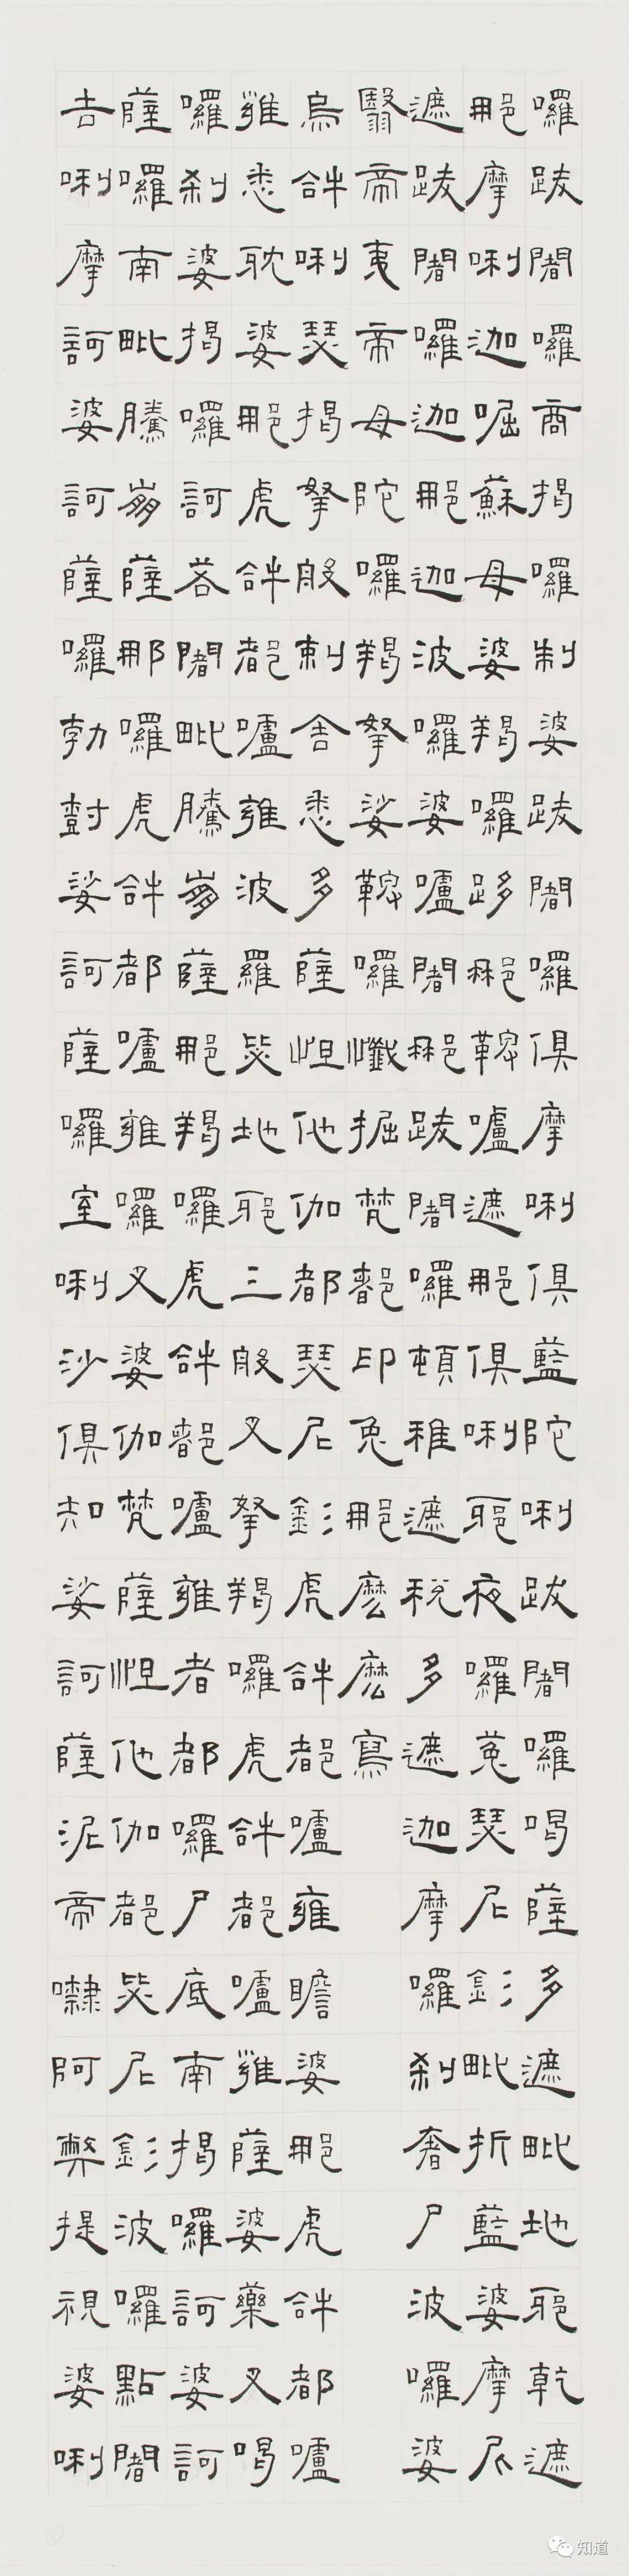 囉跋闍囉商揭囉制婆跋闍囉俱摩唎俱藍陀唎跋闍囉喝薩多遮毗地耶乾遮
那摩唎迦啒蘇母婆羯囉跢那鞞嚧遮那俱唎耶夜囉菟瑟尼釤毗折藍婆摩尼
遮跋闍囉迦那迦波囉婆嚧闍那跋闍囉頓稚遮稅多遮迦摩囉剎奢尸波囉婆
翳帝夷帝母陀囉羯拏娑鞞囉懺掘梵都印兔那麼麼寫
烏𤙖唎瑟揭拏般刺舍悉多薩怛他伽都瑟尼釤虎𤙖都嚧雍瞻婆那虎𤙖都嚧
雍悉耽婆那虎𤙖都嚧雍波羅毖地耶三般叉拏羯囉虎𤙖都嚧雍薩婆藥叉喝
囉剎婆揭囉訶若闍毗騰崩薩那羯囉虎𤙖都嚧雍者都囉尸底南揭囉訶婆訶
薩囉南毗騰崩薩那囉虎𤙖都嚧雍囉叉婆伽梵薩怛他伽都毖尼釤波囉點闍
吉唎摩訶婆訶薩囉勃樹娑訶薩囉室唎沙俱知娑訶薩泥帝㘑阿弊提視婆唎
知道